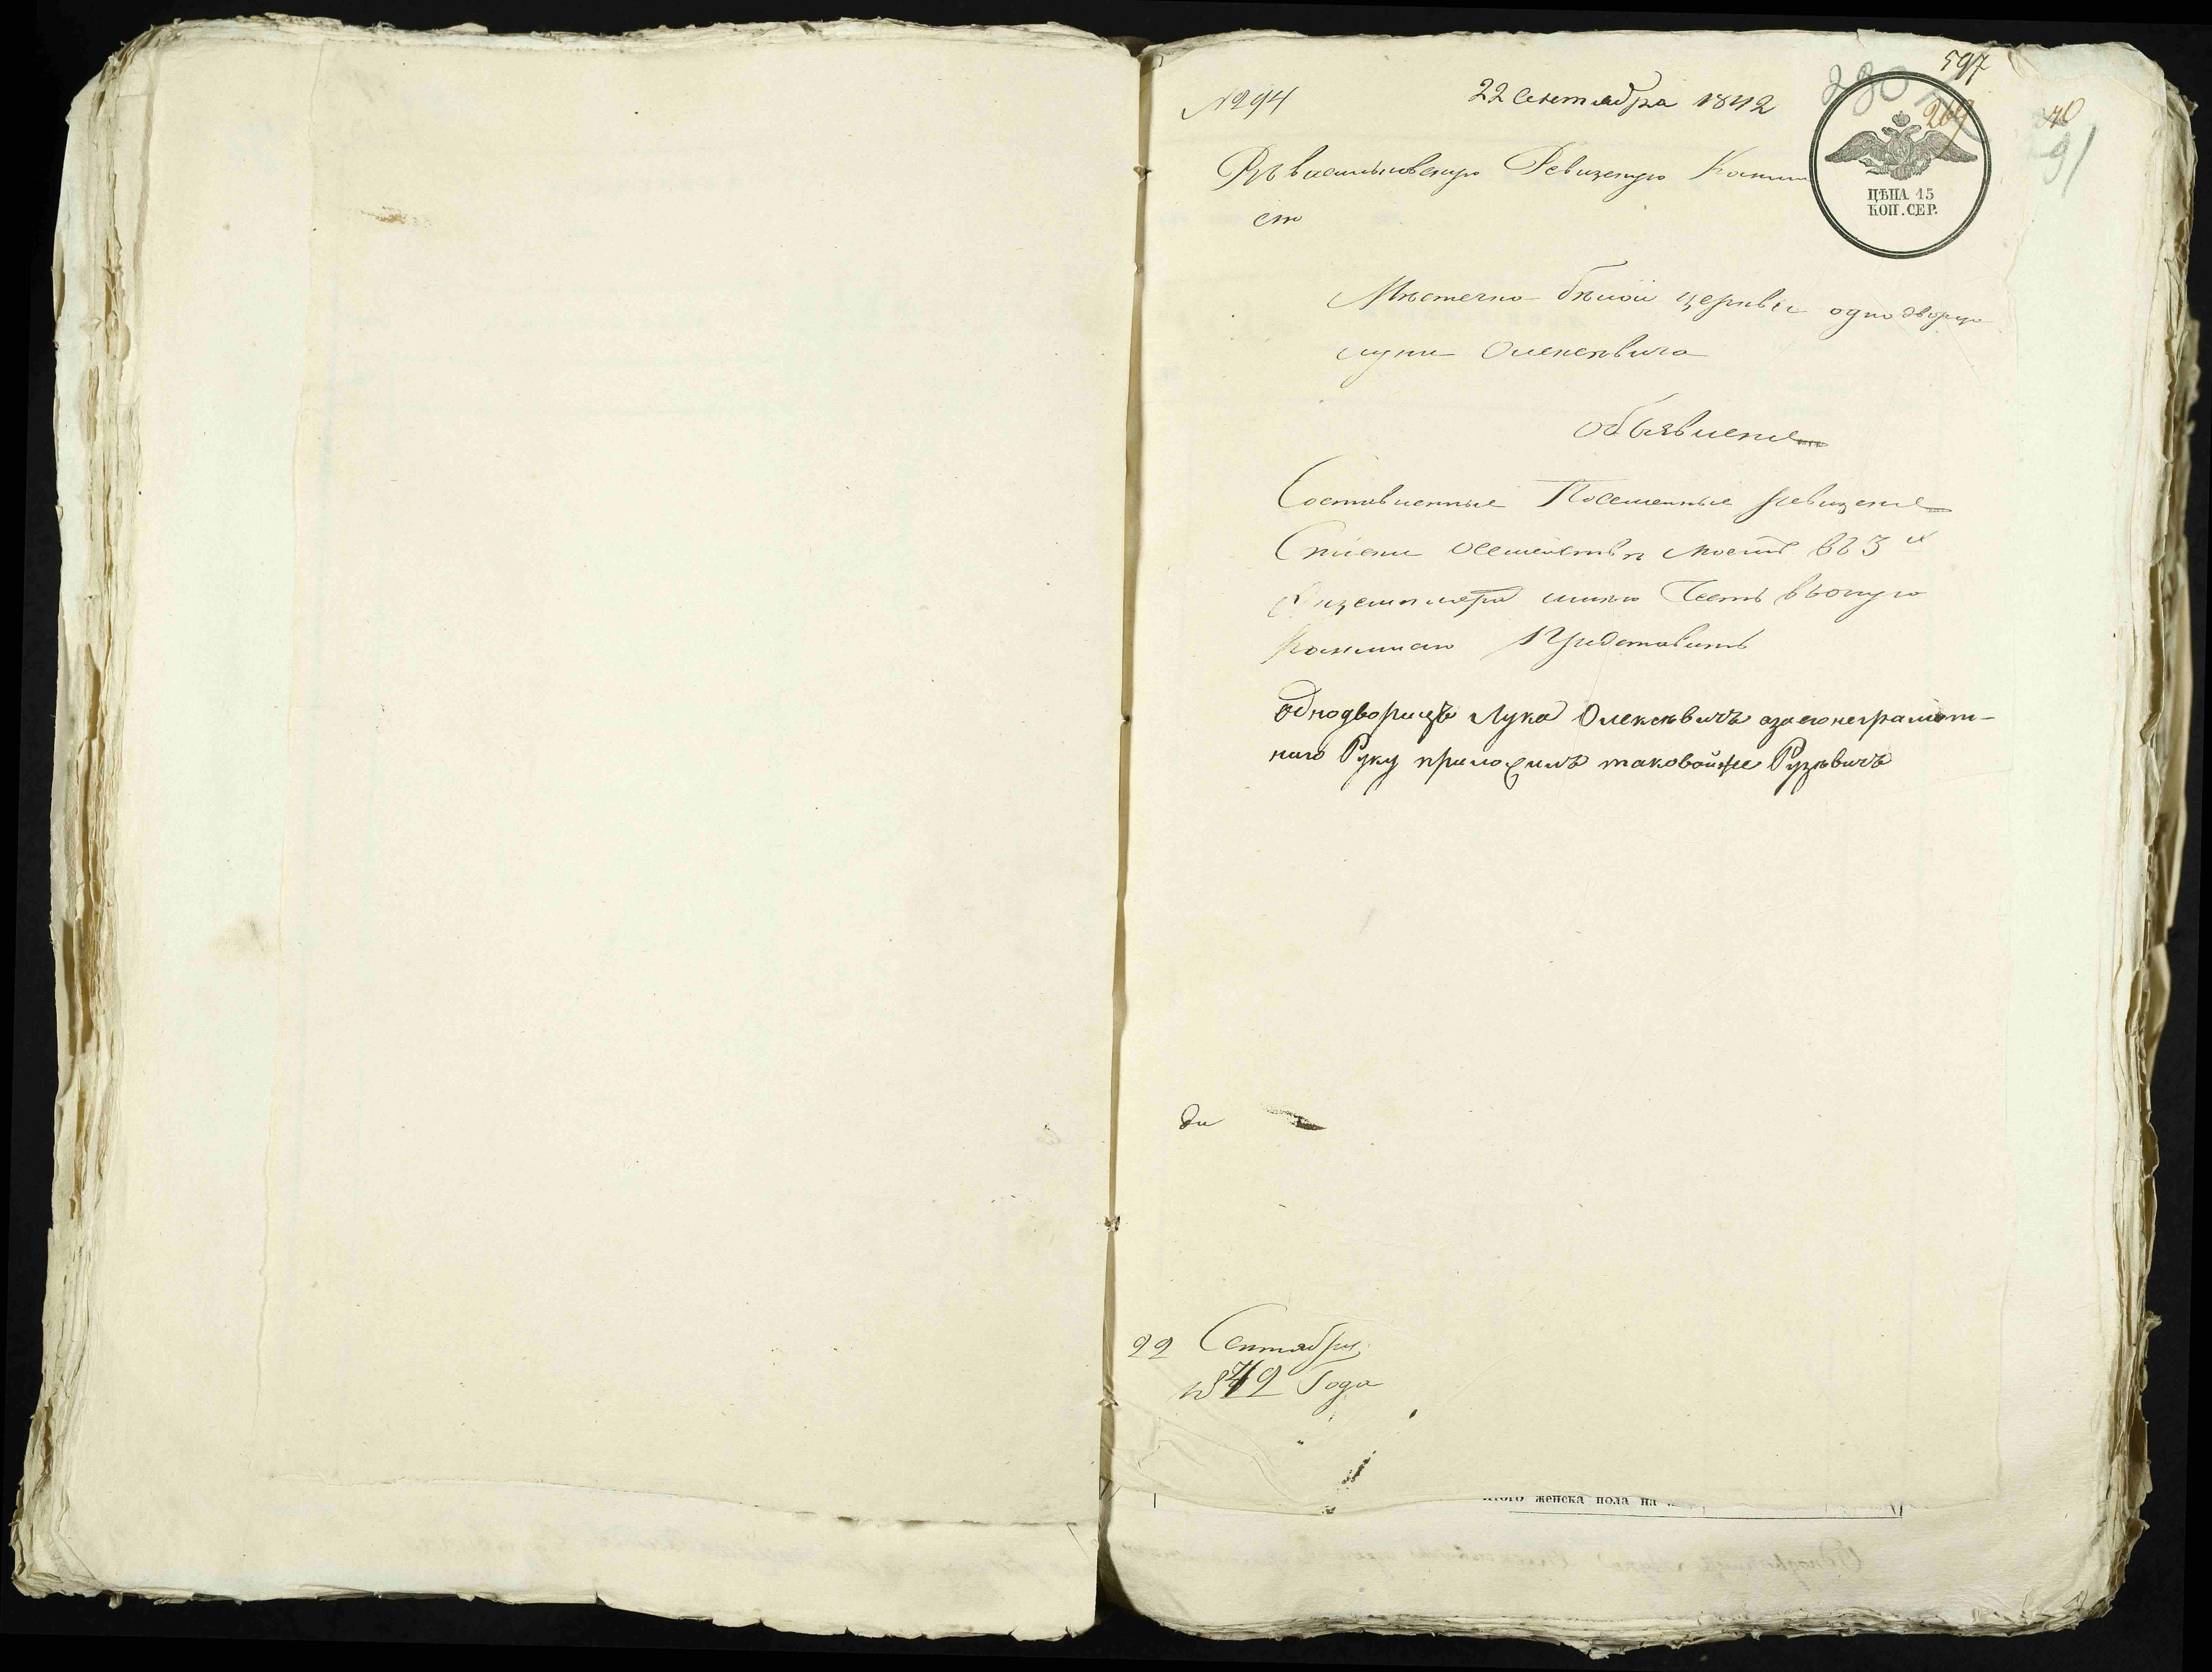 597
№294 22 Сентября 1842
280
269
270
91
ЦѢНА 15
КОП. СЕР.
Въ васильковскую Ревизскую Комми
сію
Мѣстечка бѣлой церквы однодворца
луки Олекевича
объявление
Составленные Посемейные ревизские
Списки о семействѣ моемъ въ 3х
Экземплярах имею Честь въ оную
комисию Представить
однодворецъ Лука Олексѣвичъ азаегонеграмот-
наго Руку приложилъ таковойже
22 Сентября
1842 Года
итого женска пола на